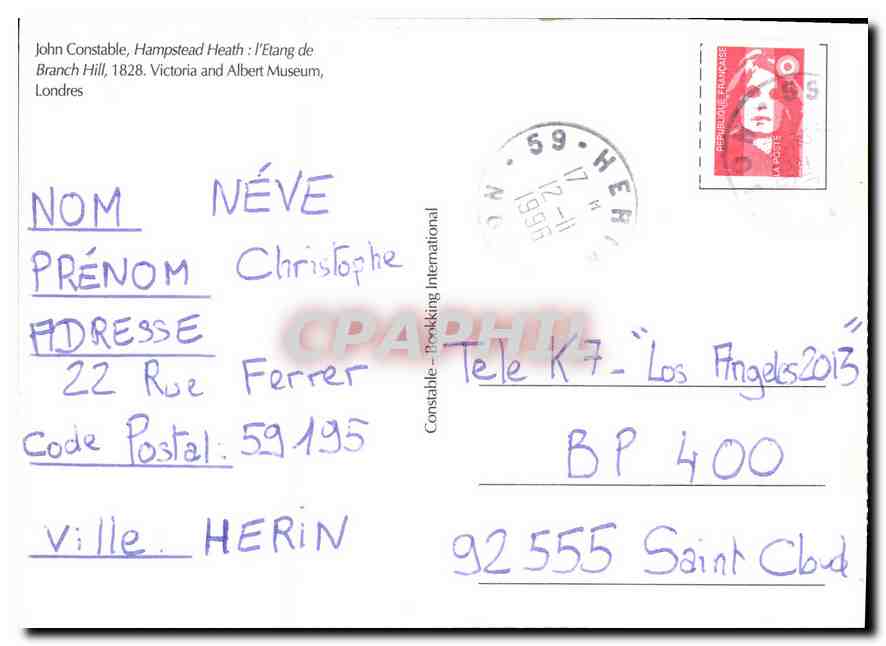 John Constable, Hampstead Heath : l'Etang de
Branch Hill, 1828. Victoria and Albert Museum,
Londres
NOM NÉVE
PRÉNOM Christophe
ADRESSE
22 Rue Ferrer
Code Postal : 59195
Ville. HERIN
Constable – Bookking International
CPAPHIL
RÉPUBLIQUE FRANÇAISE
LA POSTE
59 - HERIN
17 H
12-11
1996
Tele K7 - "Los Angeles 2013"
BP 400
92555 Saint Cloud